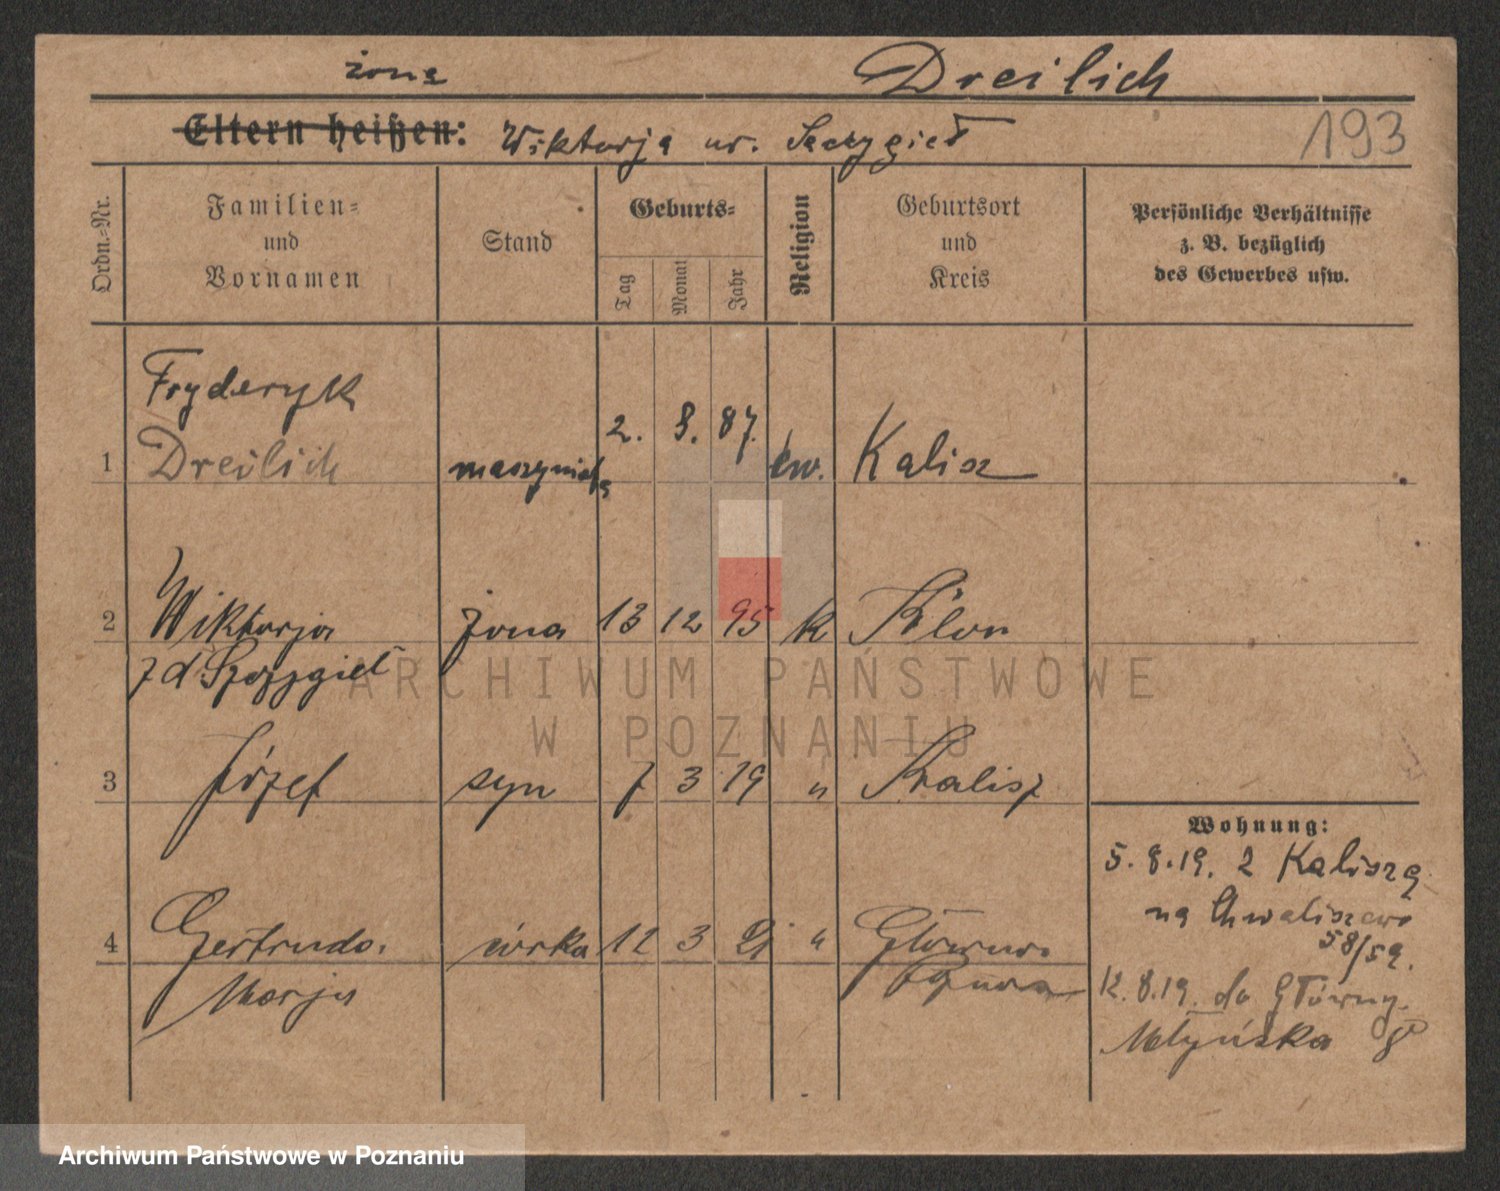 żona Dreilich
Eltern heißen: Wiktorja ur. Szczygieł 193
Ordn.=Nr.
Familien=
und
Vornamen
Stand
Geburts=
Tag
Monat
Jahr
Religion
Geburtsort
und
Kreis
Persönliche Verhältnisse
z. B. bezüglich
des Gewerbes usw.
Fryderyk
1 Dreilich maszynista 2. 8. 87. ew. Kalisz
2 Wiktorja żona 13 12 95 k
z d Szczygieł
3 Józef syn 7 3 19 " Kalisz
4 Gertruda córka 12 3 21 " Główna
Marja
Wohnung:
5. 8. 19. z Kalisza
na Chwaliszewo
58/59.
12. 8. 19. do Główny
Młyńska 8
ARCHIWUM PAŃSTWOWE
W POZNANIU
Archiwum Państwowe w Poznaniu